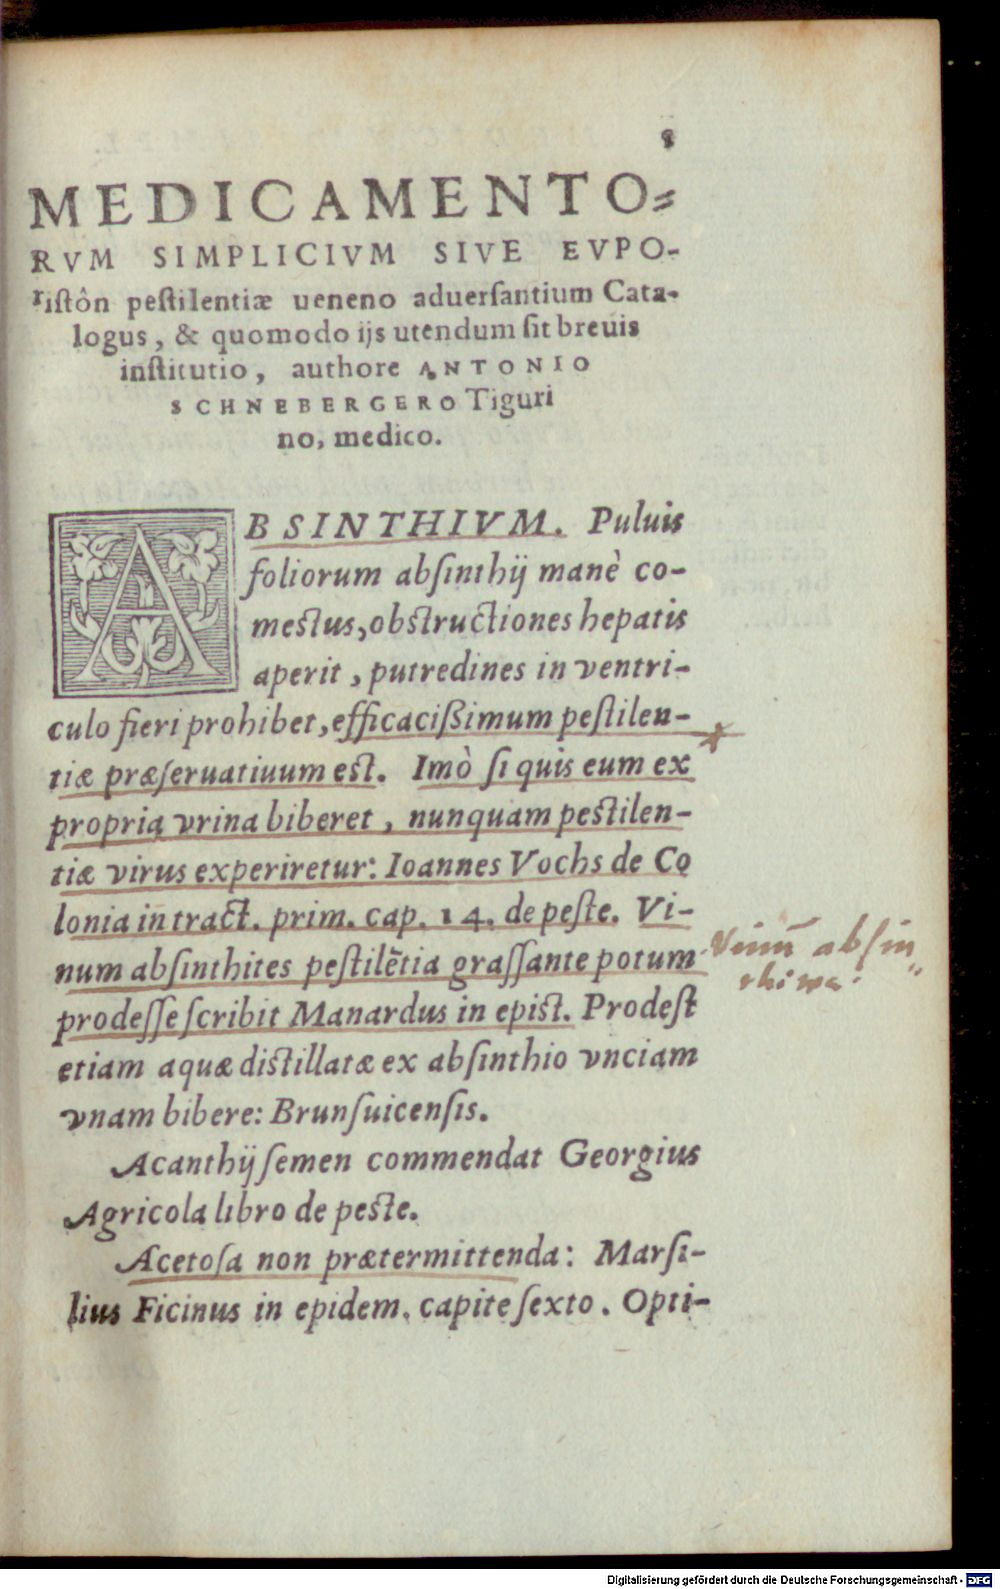 8
MEDICAMENTO-
RVM SIMPLICIVM SIVE EVPO-
ristôn pestilentiæ ueneno aduersantium Cata-
logus, & quomodo ijs utendum sit breuis
institutio, authore ANTONIO
SCHNEBERGERO Tiguri
no, medico.
ABSINTHIVM. Puluis
foliorum absinthij manè co-
mestus, obstructiones hepatis
aperit, putredines in ventri-
culo fieri prohibet, efficacißimum pestilen-
tiæ præseruatiuum est. Imò si quis eum ex
propria vrina biberet, nunquam pestilen-
tiæ virus experiretur: Ioannes Vochs de Co
lonia in tract. prim. cap. 14. de peste. Vi-
num absinthites pestilẽtia grassante potum
prodesse scribit Manardus in epist. Prodest
etiam aquæ distillatæ ex absinthio vnciam
vnam bibere: Brunsuicensis.
Acanthij semen commendat Georgius
Agricola libro de peste.
Acetosa non prætermittenda: Marsi-
lius Ficinus in epidem. capite sexto. Opti-
Vinū absin
Digitalisierung gefördert durch die Deutsche Forschungsgemeinschaft - DFG